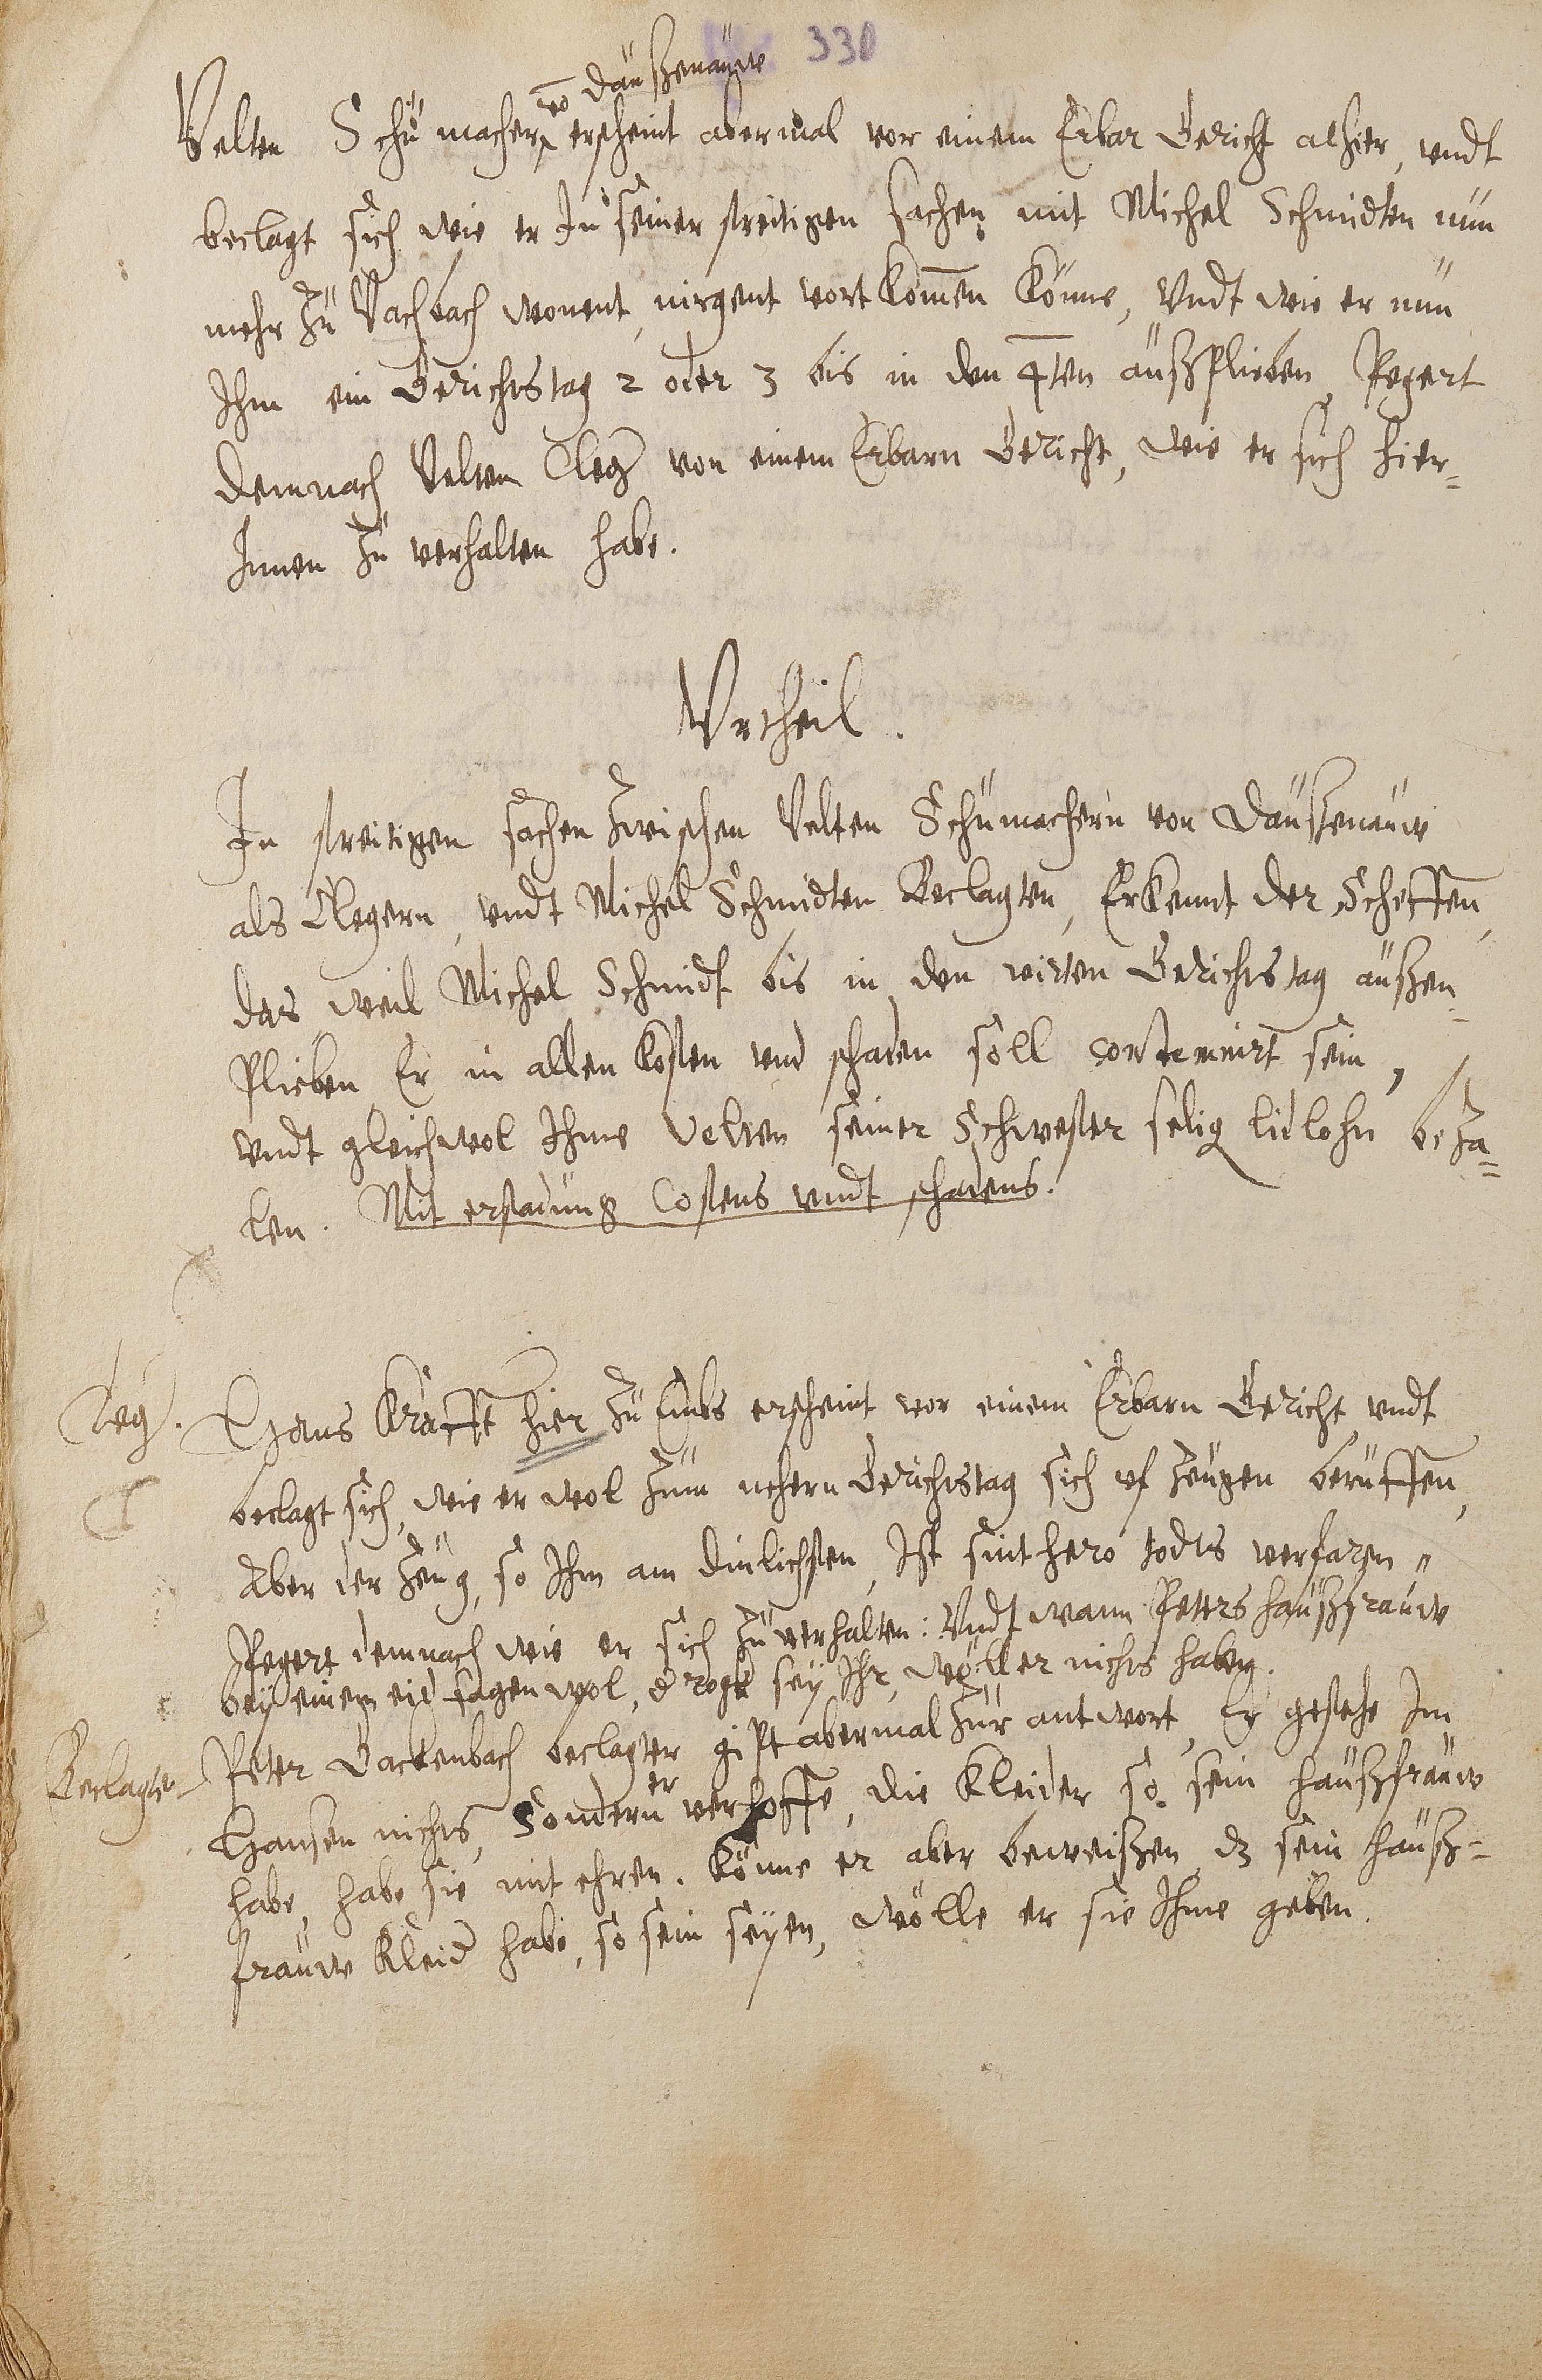 330
võ Daußenauw
Velten Schumacher erscheint abermal vor einem Erbar Gericht alhier, vndt
beclagt sich wie er In seiner streitigen sachen mit Michel Schmidten nun
mehr zu Vachbach wonent, nirgent vort kom̄en könne, Vndt wie er nun
Ihm ein Gerichtstag 2 oder 3 bis in den 4ten außplieben, Pegert
demnach Velten Cleg von einem Erbarn Gericht, wie er sich hier-
Innen zu verhalten habe.
Vrtheil.
In streitigen sachen zwischen Velten Schumachern von Daußenauw
als Clegern, vndt Michel Schmidten Beclagten, Erkennt der Scheffen,
das weil Michel Schmidt bis in den virten Gerichtstag außen-
plieben Er in allen kosten vnd schaden soll contemnirt sein,
vndt gleichwol Ihme Velten seiner Schwester selig lidlohn beza-
len. Mit erstadung Costens vndt schadens.
Cleg. Hans Krafft hier zu Embs erscheint vor einem Erbarn Gericht vndt
beclagt sich, wie er wol zum nehern Gerichtstag sich vf zeugen beruffen,
Aber der zeug, so Ihm am dinlichsten, Ist sinthero todts verfaren,
Pegert demnach wie er sich zu verhalten: Vndt wann Peters haußfrauw
bey einem eid sagen wol, d rogk sey Ihr, wöll er nichts haben.
Beclagter Peter Dackenbach beclagter gipt abermal zur antwort, Er gestehe Im
Hansen nichts, Sondern er verhoffe, die kleider so sein haußfrauw
habe, habe sie mit ehren. könne er aber beweißen dz sein hauß-
frauw kleid habe, so sein seyen, wölle er sie Ihme geben.